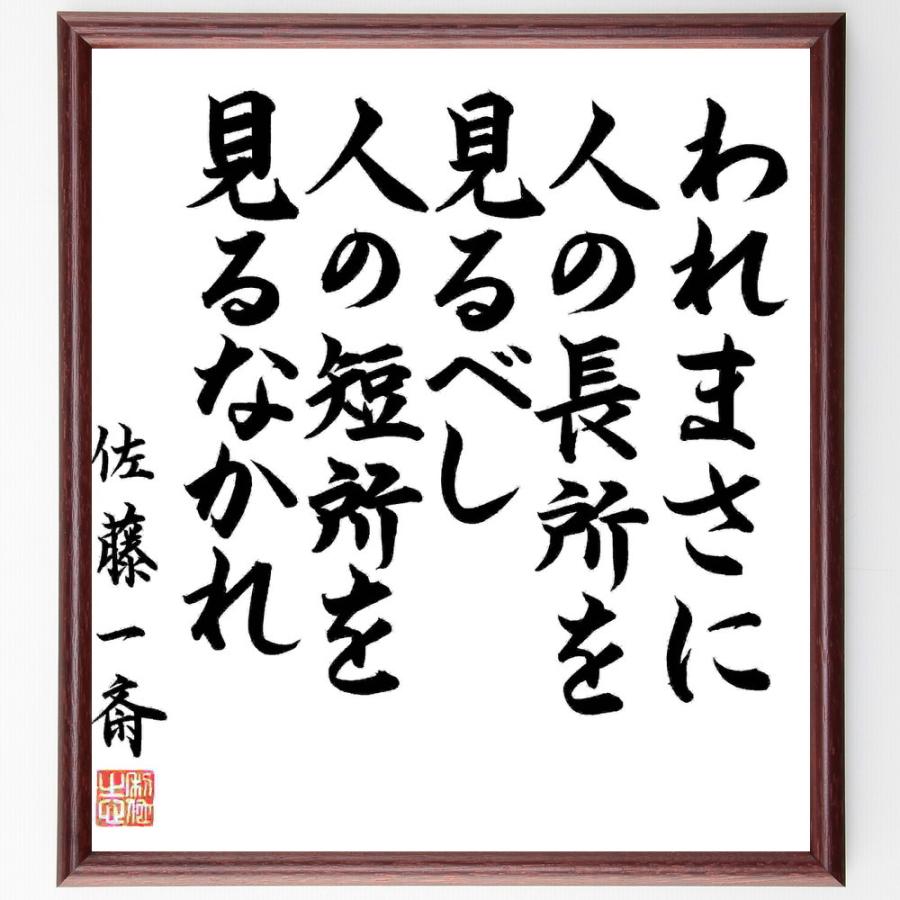 われまさに
人の長所を
見るべし
人の短所を
見るなかれ
佐藤一斎